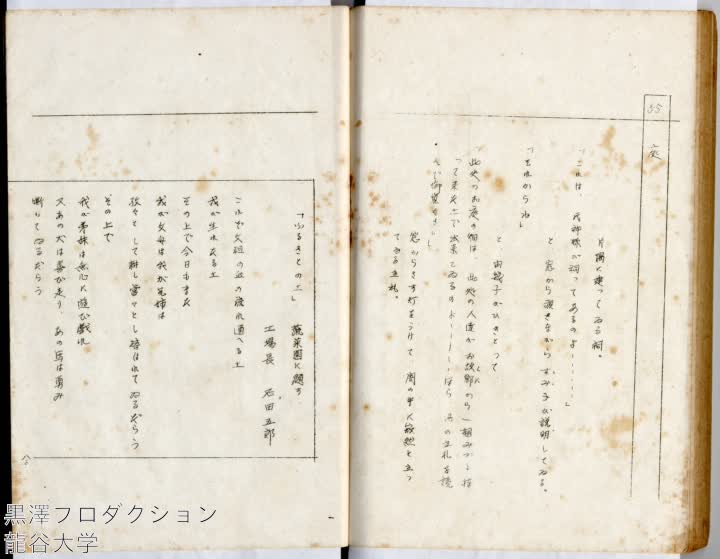 55
夜
片隅に建っている祠。
「これは、氏神様が祠ってあるのよ‥‥‥」
と、窓から覗きながらすみ子が説明している。
「それからね」
と、由璃子がひきとって
「此処のお庭の畑は、此処の人達がお故郷から一握みづゝ持
って来た土で出来てゐるのよ‥‥‥ほら、あの立札を読
んで御覧なさい」
窓からさす灯をうけて、闇の中に毅然と立っ
てゐる立札。
「ふるさとの土」
蔬菜園に題す
工場長 石田五郎
これぞ父祖の血の流れ通へる土
我が生れたる土
その上で今日もまた
我が父母は我が兄姉は
孜々として耕し営々とし培はれてゐるだらう
その上で
我が弟妹は無心に遊び戯れ
又あの犬は喜び走り、あの馬は勇み
嘶いてゐるだらう
黒澤プロダクション
龍谷大学